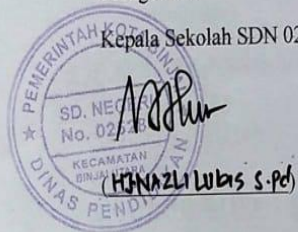 Kepala Sekolah SDN 02
PEMERINTAH KOTA BINJ
SD. NEGERI
No. 02
KECAMATAN
BINJAI UTARA
DINAS PENDIDIKAN
(HJ NAZLI LUBIS S.Pd)